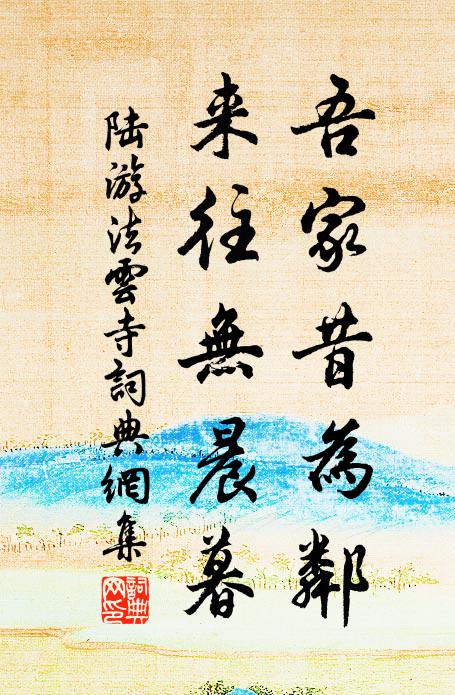 吾家昔為鄰
来往無晨暮
陸游法雲寺詞典網集